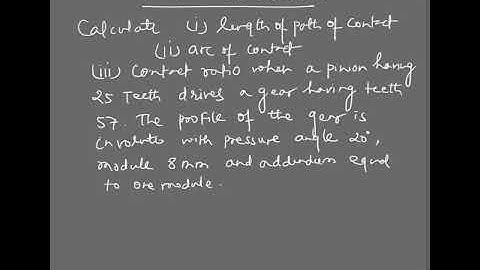 Calculate (i) length of path of contact
(ii) arc of contact
(iii) Contact ratio when a pinion having
25 Teeth drives a gear having teeth
57. The profile of the gear is
involute with pressure angle 20°,
module 8mm and addendum equal
to one module.